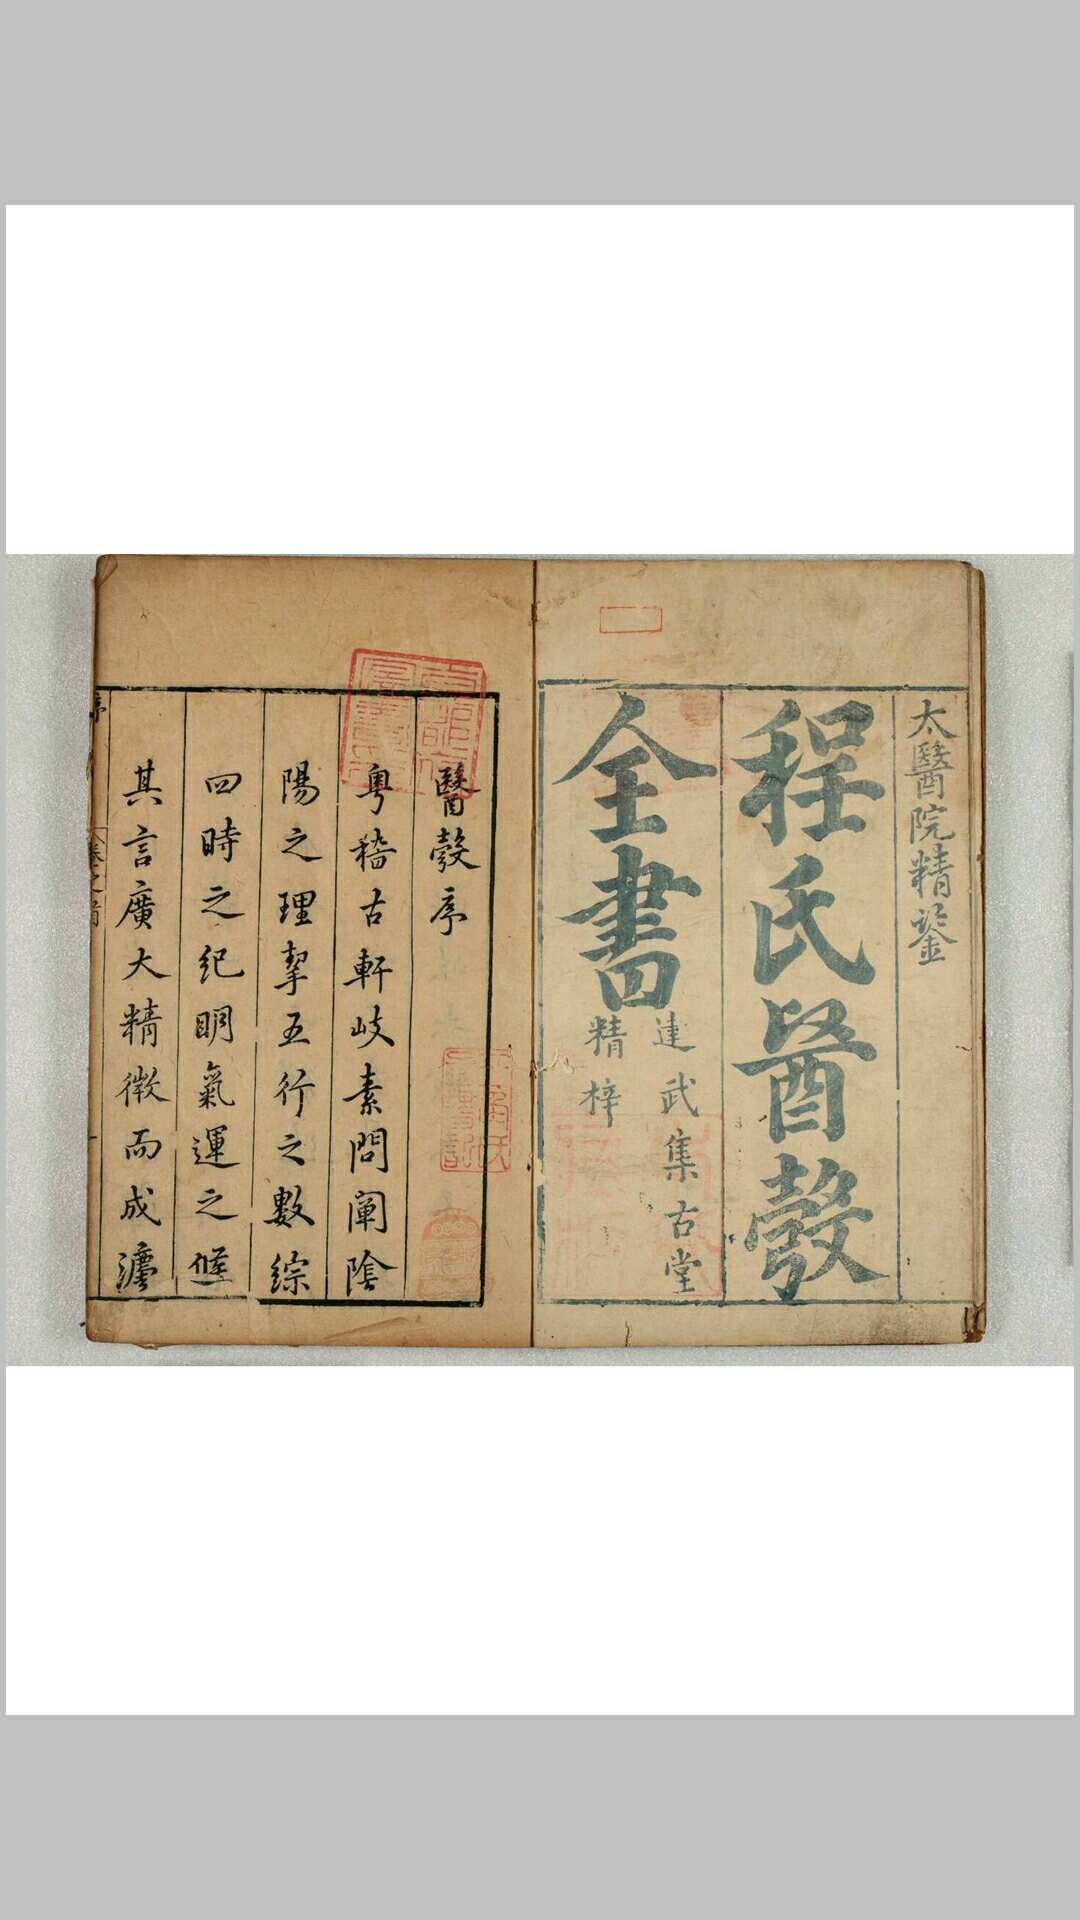 太醫院精鍳
程氏醫彀
全書
建武集古堂
精梓
醫彀序
粵稽古軒岐素問闡陰
陽之理挈五行之數綜
四時之紀明氣運之候
其言廣大精微而成
序
卷之首